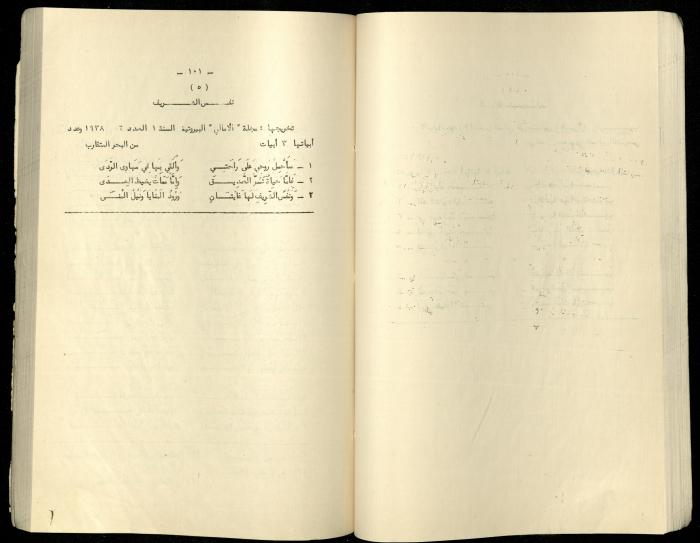 - ١٠١ -
(٥)
نفس الشريف
تخريجها : مجلة "الأمالي" البيروتية السنة ١ العدد ٦ ١٩٣٨ وعدد
أبياتها ٣ أبيات من البحر المتقارب
١ - سَأَحمِلُ روحي عَلى راحَتــي وَأُلقي بِها في مَهاوي الرَّدى
٢ - فَإِمّا حَياةٌ تَسُرُّ الصَّديــقَ وَإِمّا مَماتٌ يَغيظُ العِــدى
٣ - وَنَفسُ الشَّريفِ لَها غايَتــانِ وُرودُ المَنايا وَنَيلُ المُنــى